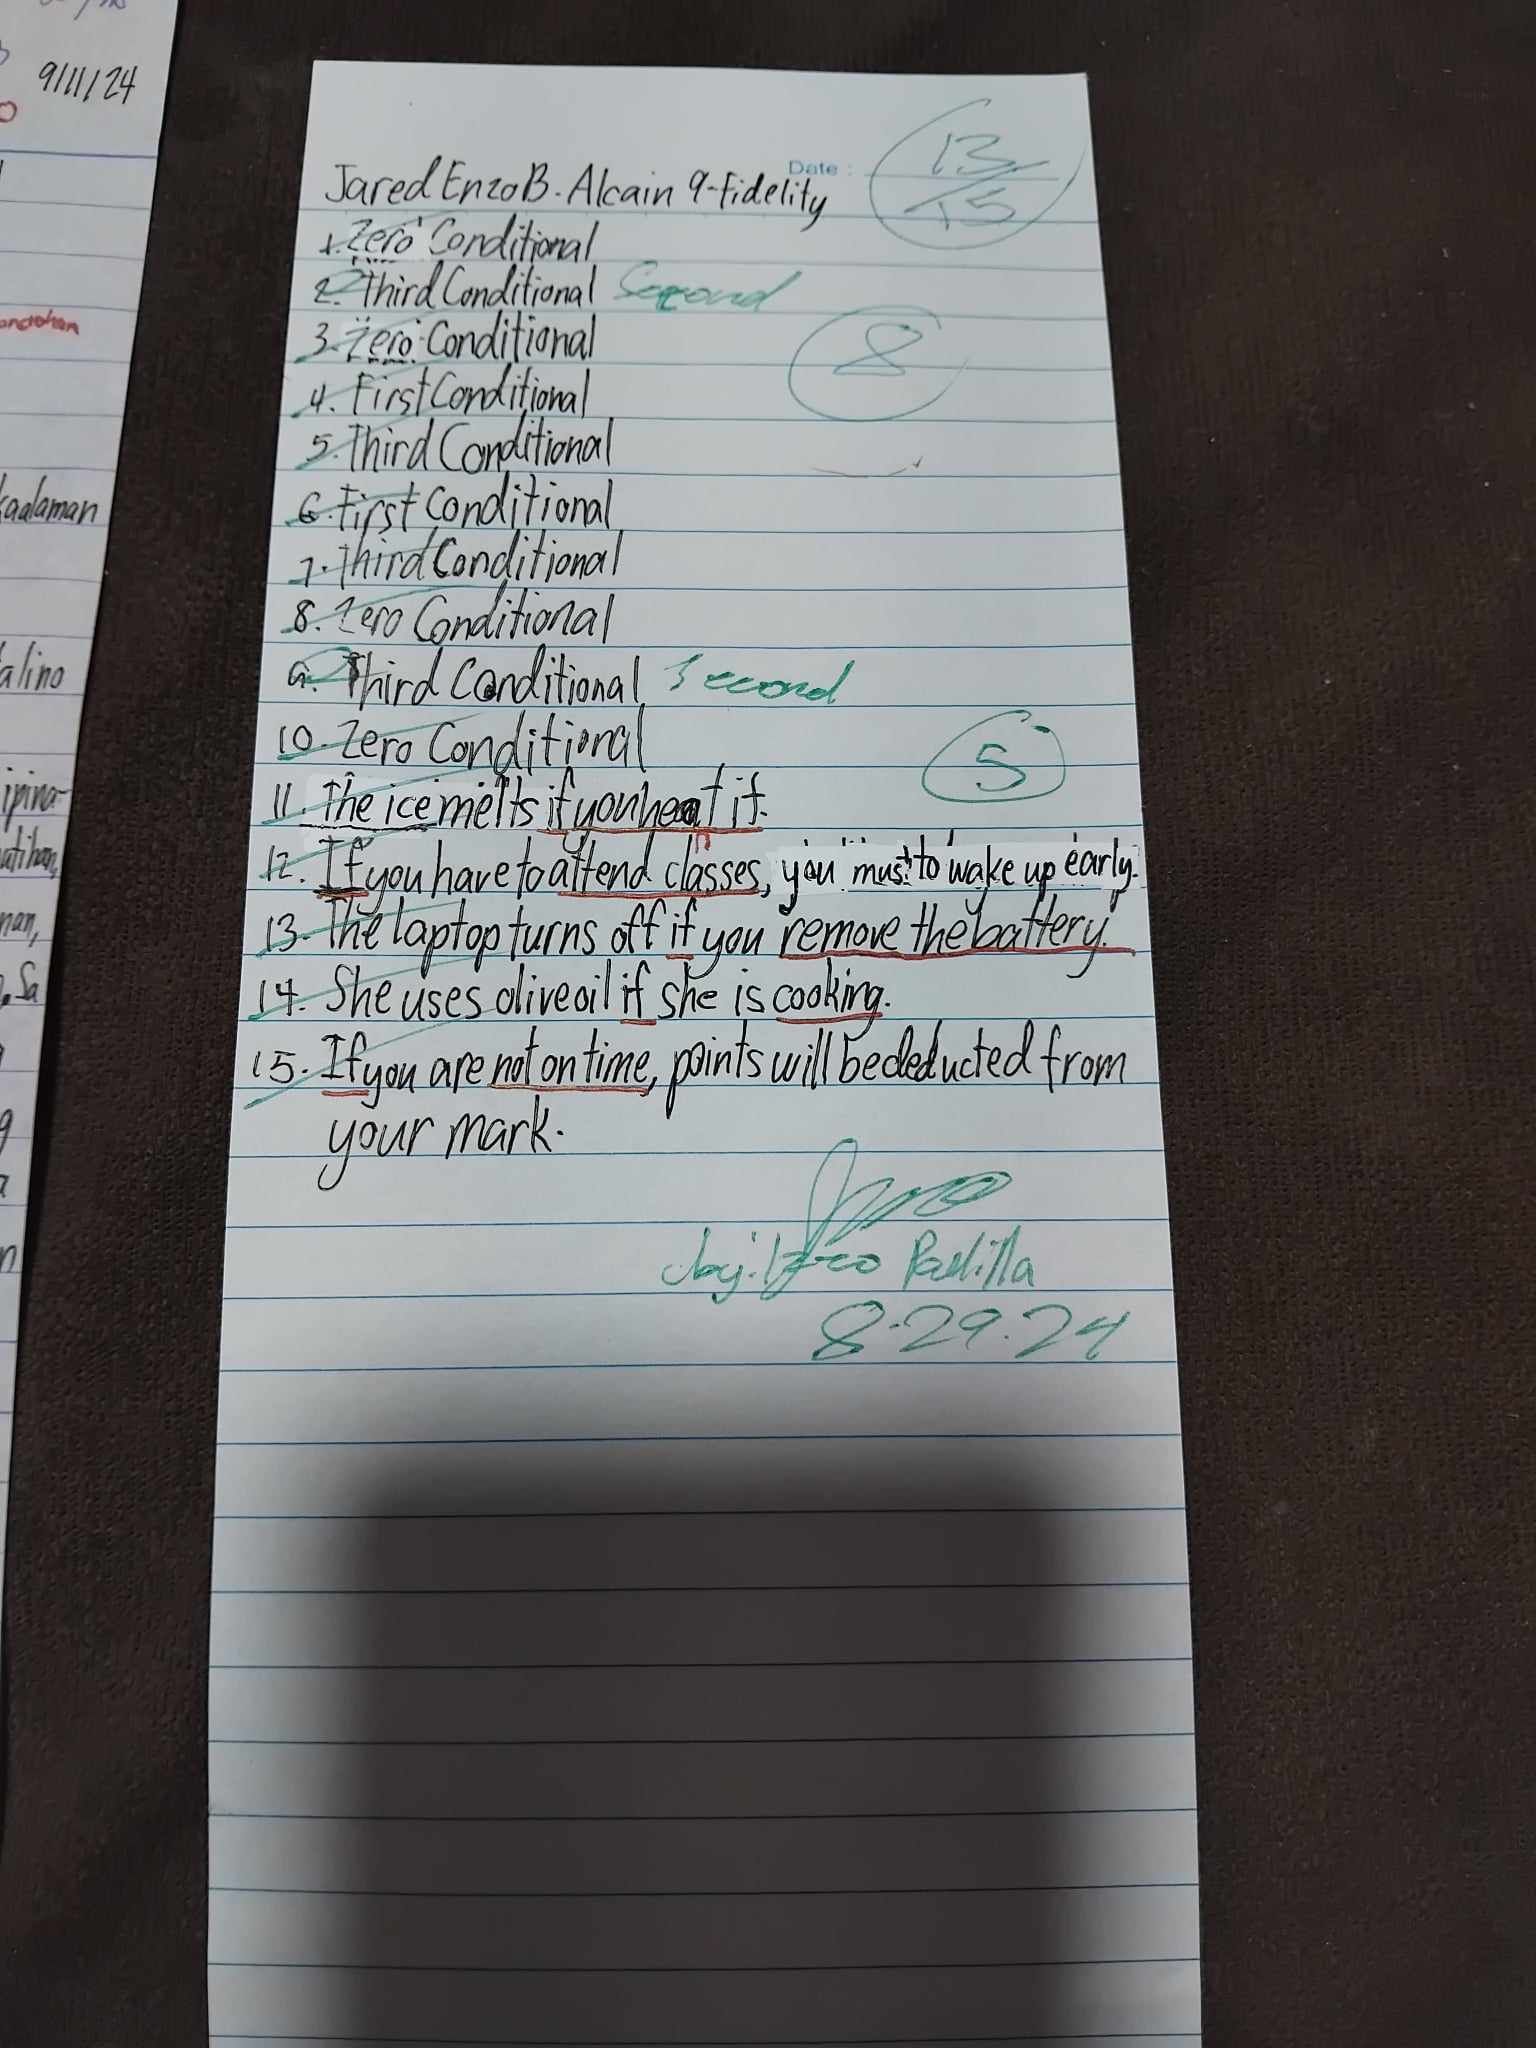 9/11/24
kaalaman
alino
Date :
13
15
Jared Enzo B. Alcain 9-Fidelity
1. Zero Conditional
2. Third Conditional Second
8
3. Zero Conditional
4. First Conditional
5. Third Conditional
6. First Conditional
7. Third Conditional
8. Zero Conditional
9. Third Conditional Second
10. Zero Conditional
5
11. The ice melts if you heat it.
12. If you have to attend classes, you must to wake up early.
13. The laptop turns off if you remove the battery.
14. She uses olive oil if she is cooking.
15. If you are not on time, points will be deducted from
your mark.
Padilla
8-29-24